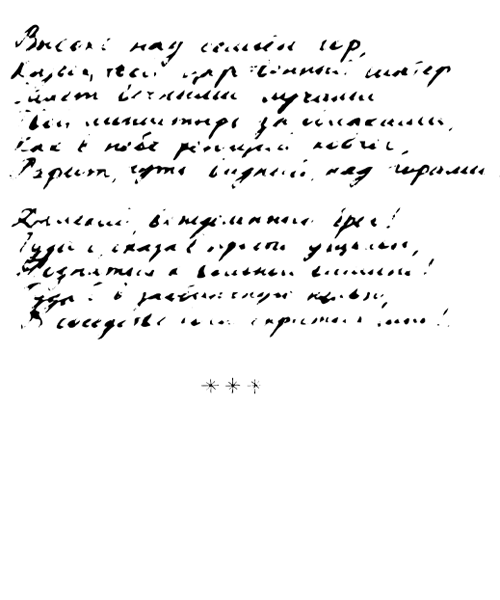 Высоко над семьёю гор,
Казбек, твой царственный шатер
Сияет вечными лучами
Твой монастырь за облаками,
Как в небе реющий ковчег,
Парит, чуть видный, над горами.
Далекий, вожделенный брег!
Туда б, сказав прости ущелью,
Подняться к вольной вышине!
Туда б в заоблачную келью,
В соседство скрыться мне!